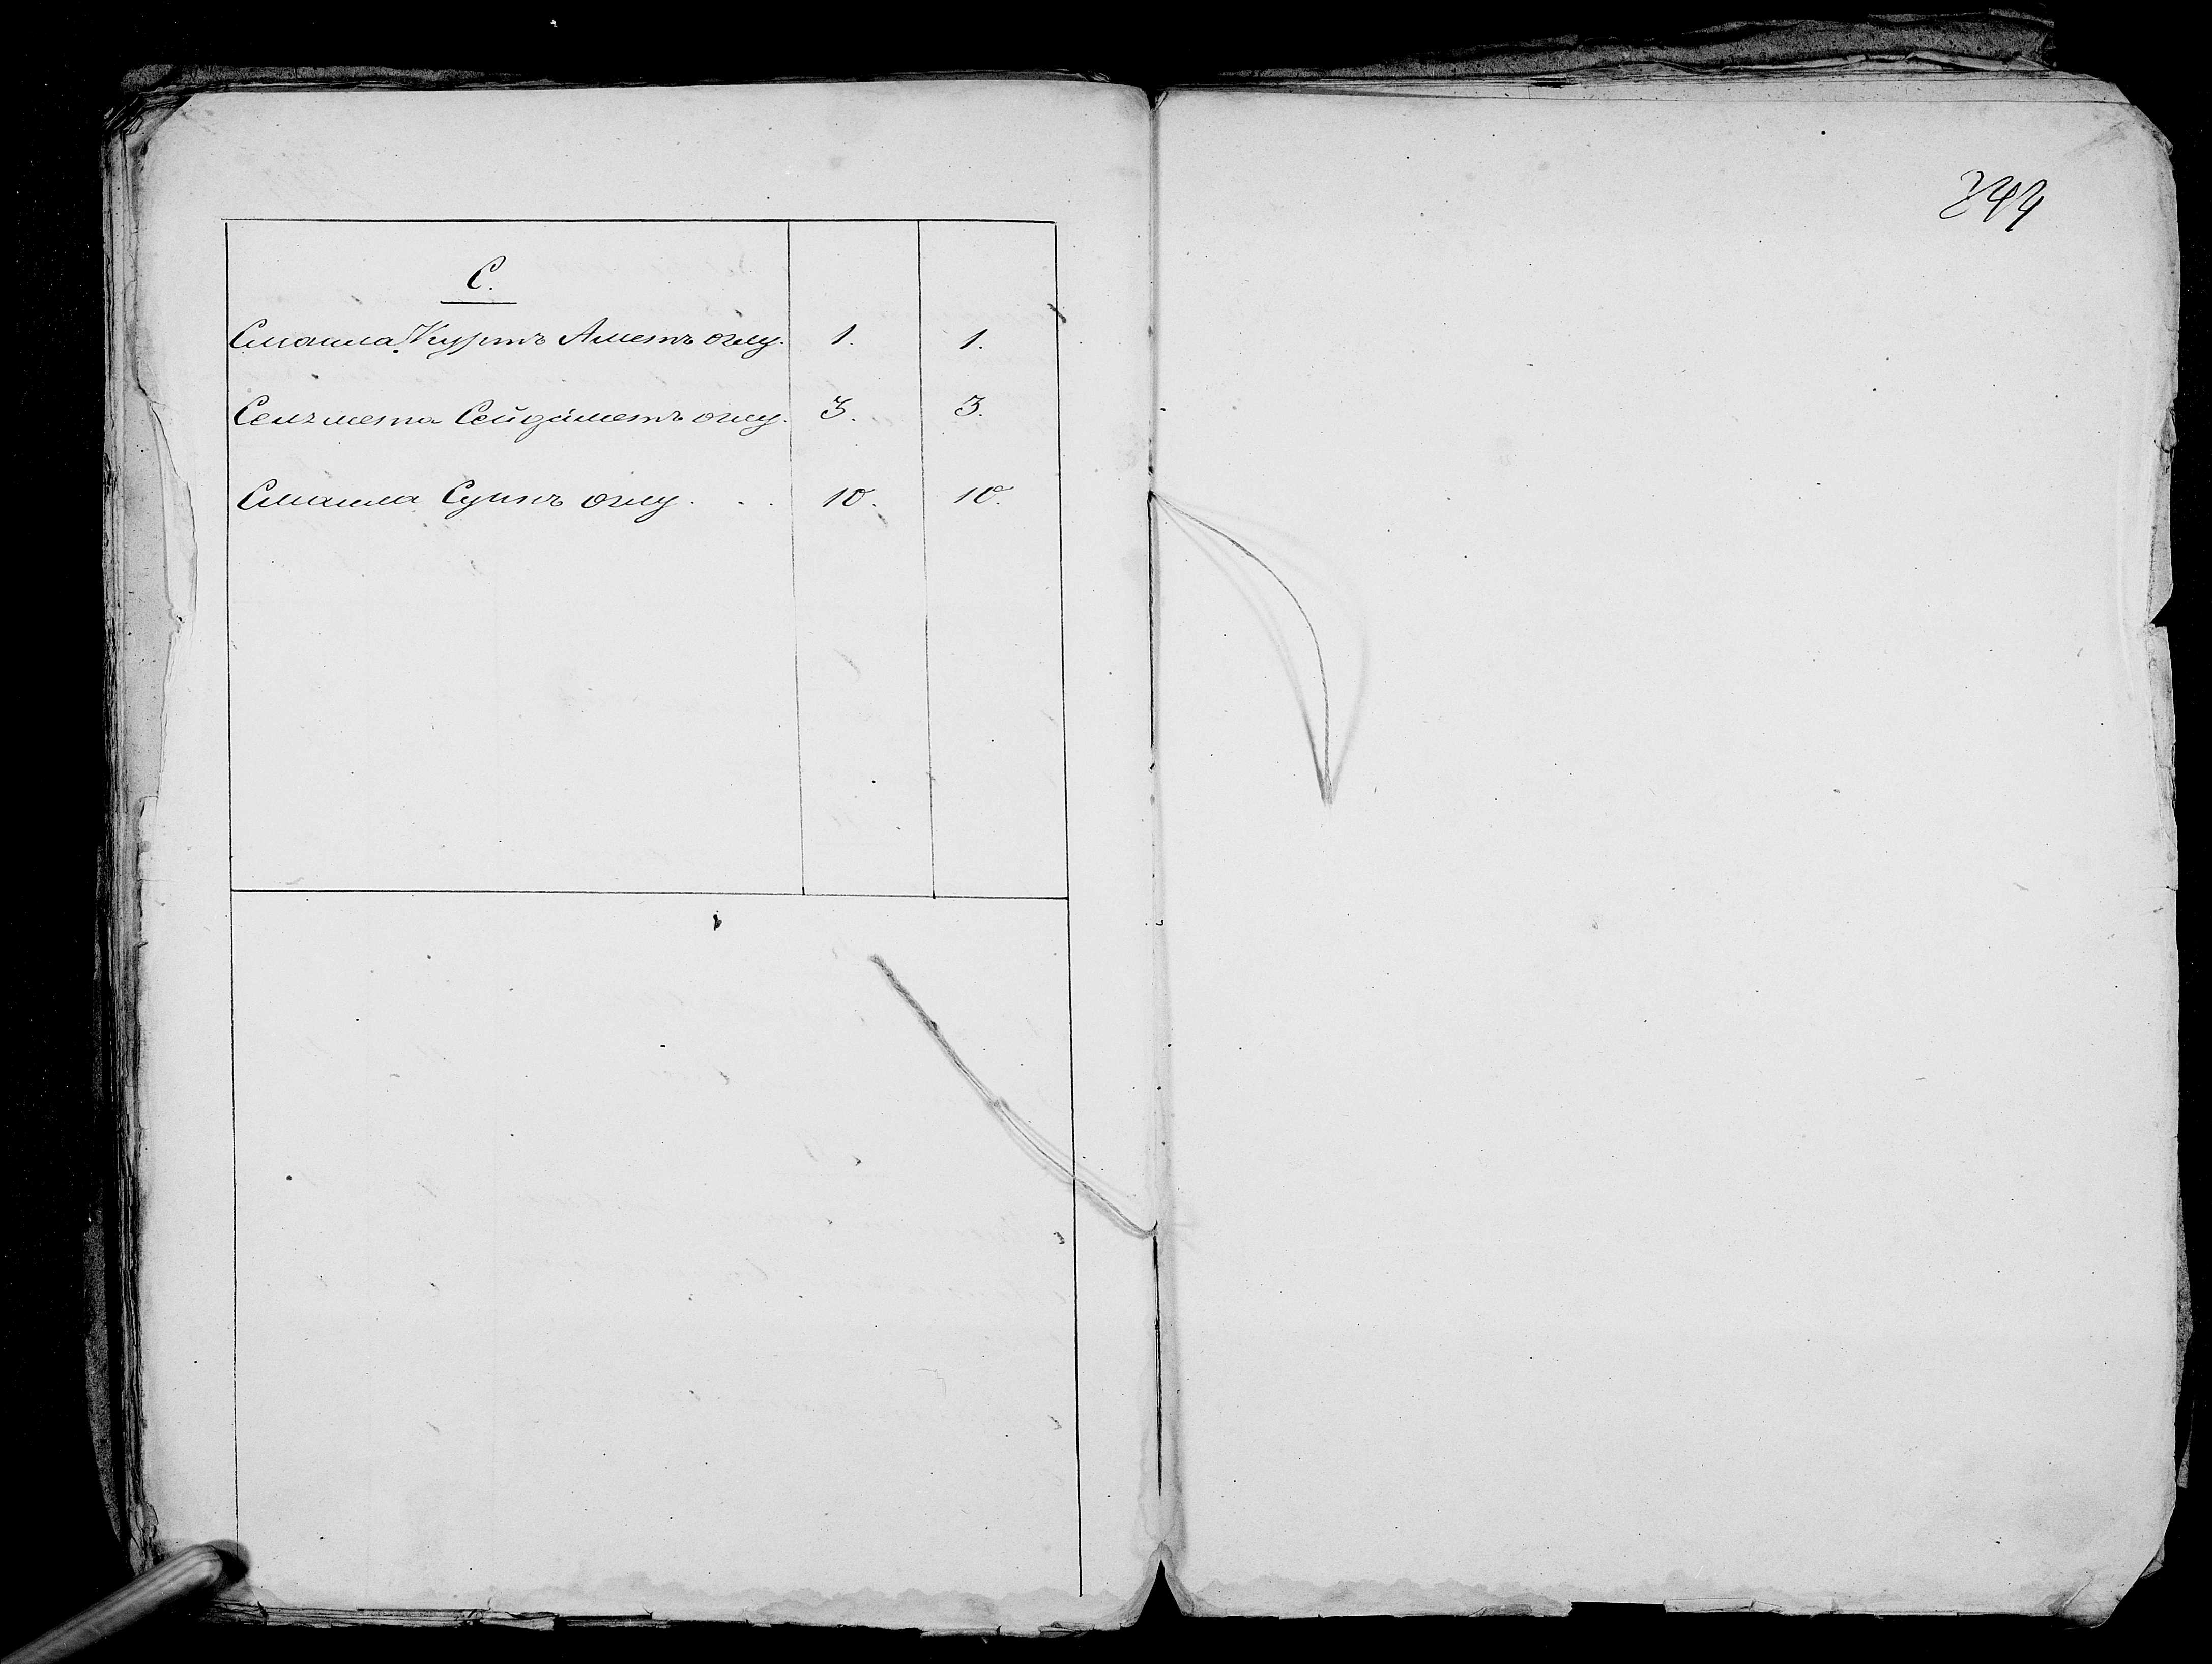 С.
Смаила Куртъ Аметъ оглу. 1. 1.
Сеитмета Сейдаметъ оглу. 3. 3.
Смаила Суинъ оглу. . . 10. 10.
844